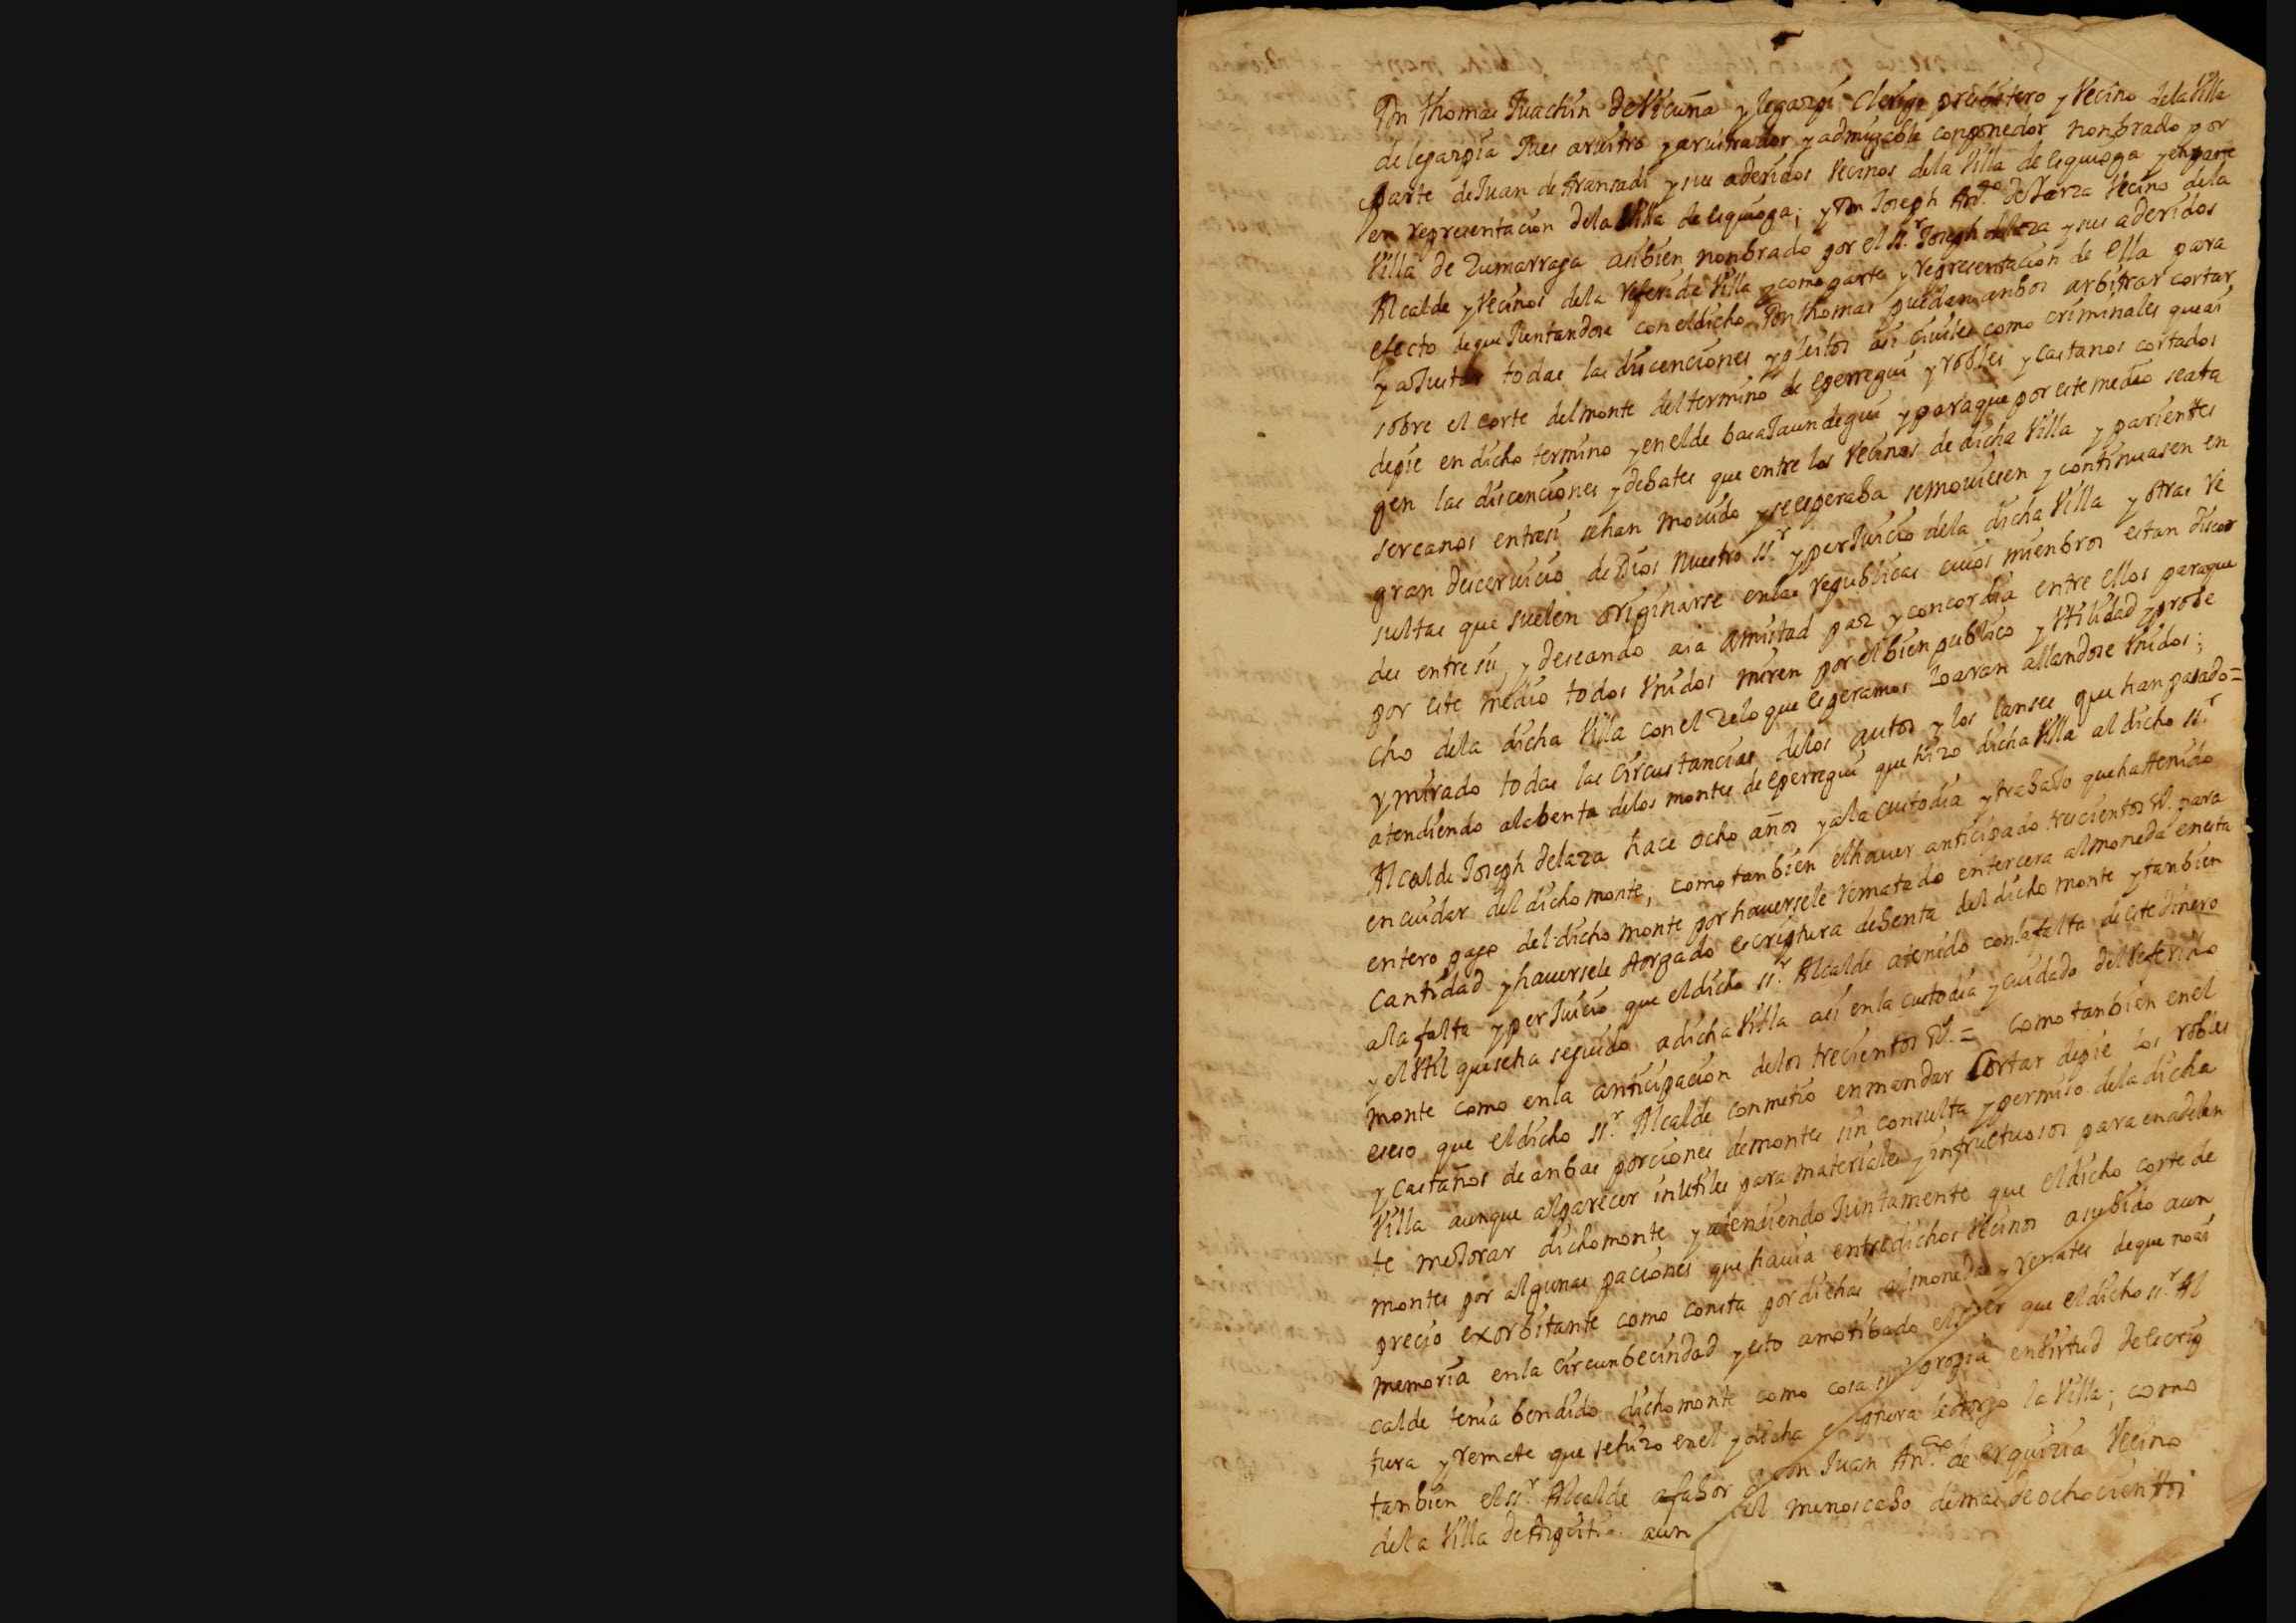 Dn Thomas Juachin de Vicuña y legazpi Clerigo presbitero y Vecino dela Villa
de legazpia Jues arvitro y arvitrador y admigable conponedor nonbrado por
parte de Juan de Aransadi y sus aderidos Vecinos dela Villa de esquioga y en parte
en representacion dela Villa de esquioga; y Dn Joseph Anto. de Yarza Vecino dela
Villa de Zumarraga asibien nonbrado por el ssr. Joseph delaza y sus aderidos
Alcalde y Vecinos dela referida Villa y como parte y representacion de ella para
efecto de que Juntandose con el dicho Dn thomas puedan anbos arbitrar cortar
y aJustar todas las discenciones y pleitos asi civiles como criminales que ai
sobre el corte del monte del termino de eperregui y robles y castanos cortados
depie en dicho termino y en el de basaJaundegui y para que por este medio se ata
gen las discenciones y debates que entre los Vecinos de dicha Villa y parientes
sercanos entresi sehan movido y se esperaba semoviesen y continuasen en
gran descervicio de Dios Nuestro ssr. y perJuicio dela dicha Villa y otras re
sultas que suelen originarse enlas republicas cuios mienbros estan discor
des entre si y deseando aia amistad paz y concordia entre ellos paraque
por este medio todos Vnidos miren por el bien publico y Vtilidad y probe
cho dela dicha Villa con el zelo que esperamos loaran allandose Vnidos;
y mirado todas las circustancias delos autos y los lanses que han pasado=
atendiendo alabenta delos montes de eperregui que hizo dicha Villa al dicho ssr.
Alcalde Joseph delaza hace ocho años y ala custodia y trabaJo que ha ttenido
en cuidar del dicho monte; como tanbien el haver anticipado trescientos Rs. para
entero pago del dicho monte por haversele rematado en tercera almoneda en esta
Cantidad y haversele otorgado escriptura debenta del dicho monte y tanbien
ala falta y perJuicio que el dicho ssr. Alcalde atenido con la falta de este dinero
y el Vtil que se ha seguido a dicha Villa asi en la custodia y cuidado del referido
monte como en la anticipacion delos trecientos Rs.= como tanbien en el
eseso que el dicho ssr. Alcalde conmetio en mandar Cortar depie los robles
y Castaños de anbas porciones de montes sin consulta y permiso dela dicha
Villa aunque alparecer inVtiles para materiales y infructuosos para en adelen
te meJorar dicho monte y atendiendo Juntamente que el dicho corte de
montes por algunas paciones que havia entre dichos Vecinos a subido a un
precio exorbitante como consta por dichas almonedas y remates de que no ai
memoria en la circunbecindad y esto amotibado el ver que el dicho ssr. Al
calde tenia bendido dicho monte como cosa su propia en Virtud de escrip
tura y remate que se hizo en el y dicha escriptura le otorgo la Villa; como
tanbien el ssr. Alcalde afabor Dn Juan Anto. de erquizia Vecino
dela Villa de Aspeiti aun menoscabo de mas de ochocienttos